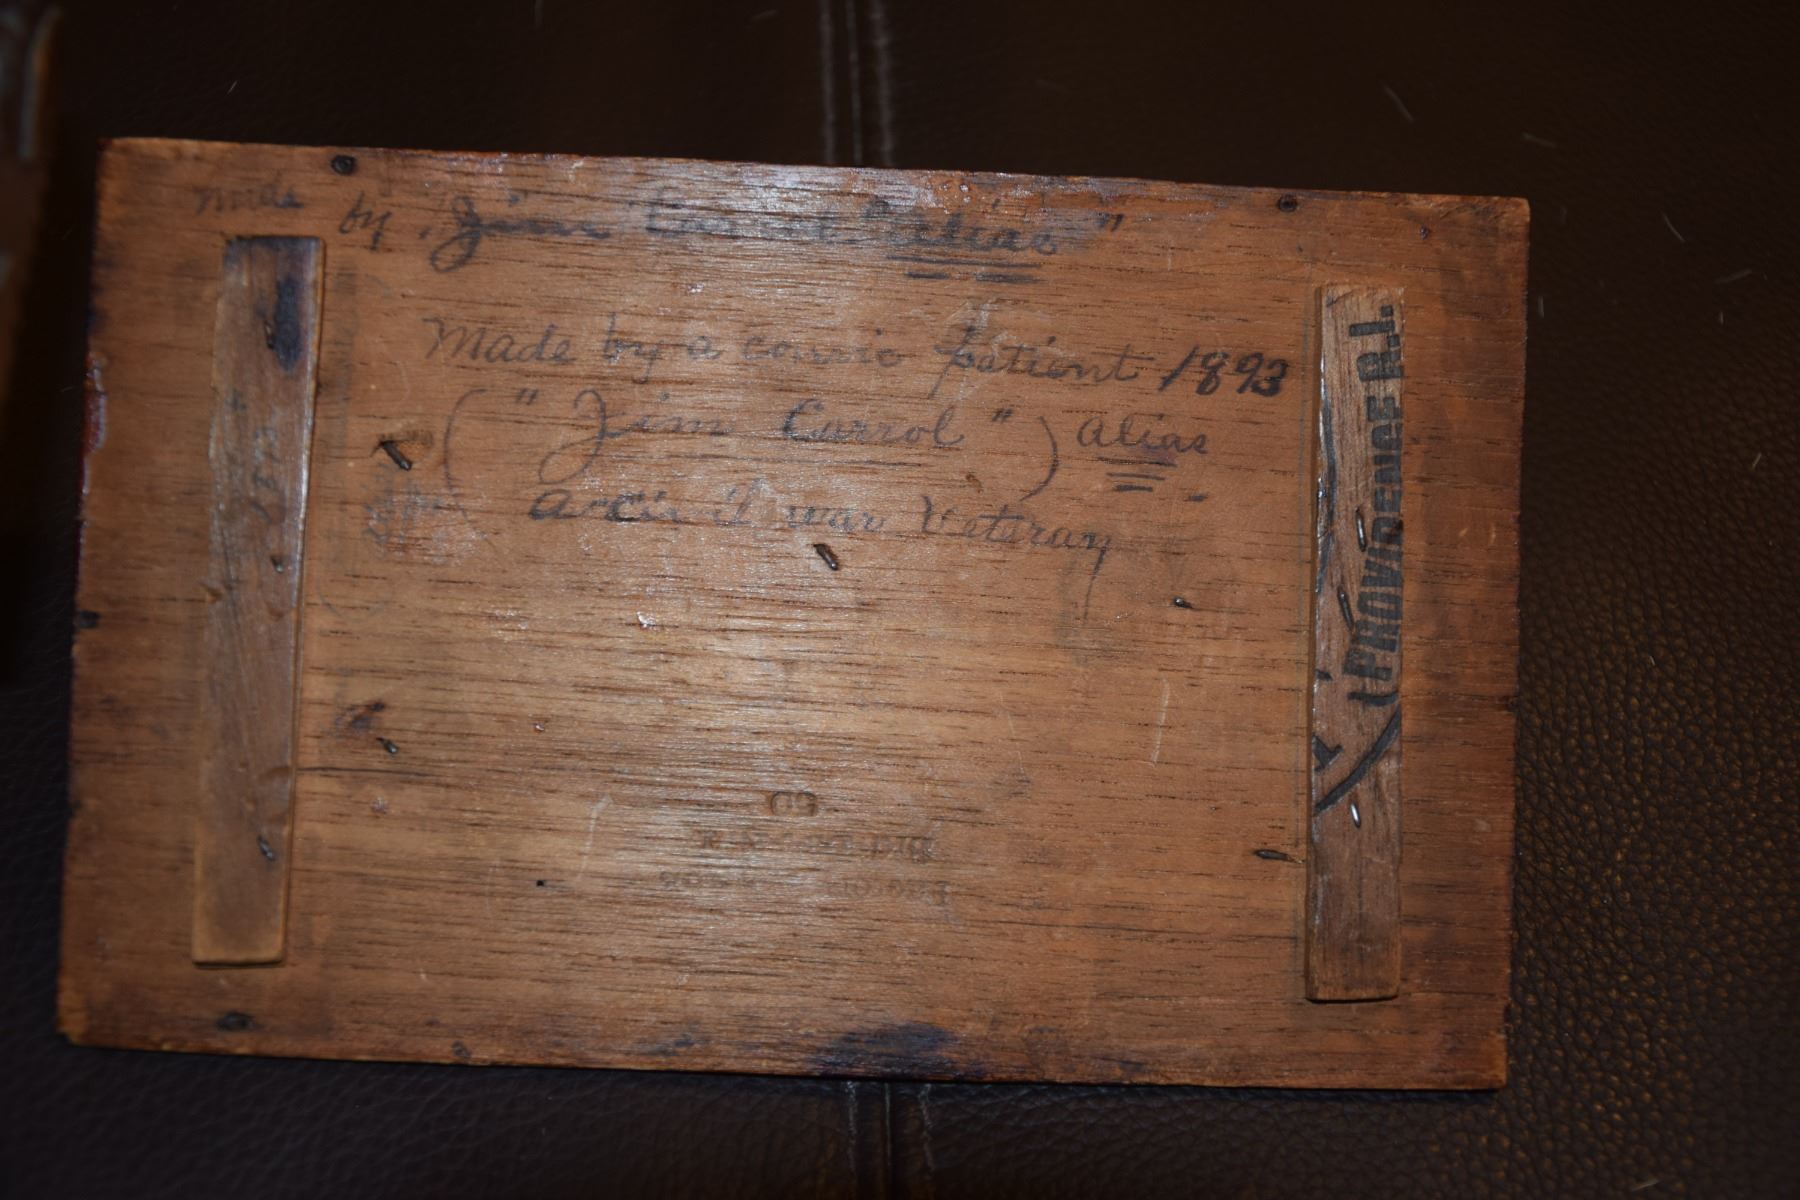 made by "Jim Carrol "Alias"
Made by a convic patient 1893
("Jim Carrol") alias
a civil war Veteran
(PROVIDENCE R.I.
50